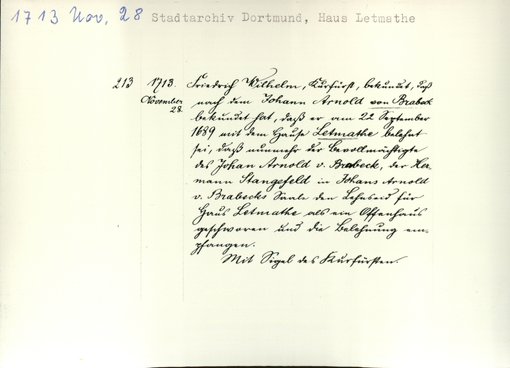 1713 Nov. 28 Stadtarchiv Dortmund, Haus Letmathe
213 1713. Friedrich Wilhelm, Kurfürst, bekundet, daß
November nach dem Johann Arnold von Brabeck
28. bekundet hat, daß er am 22 September
1689 mit dem Hause Letmathe belehnt
sei, daß nunmehr der Bevollmächtigte
des Johan Arnold v. Brabeck, der Her-
mann Stangefeld in Johans Arnold
v. Brabecks Saale den Lehnseid für
Haus Letmathe als ein Offenhaus
geschworen und die Belehnung em-
pfangen.
Mit Sigel des Kurfürsten.